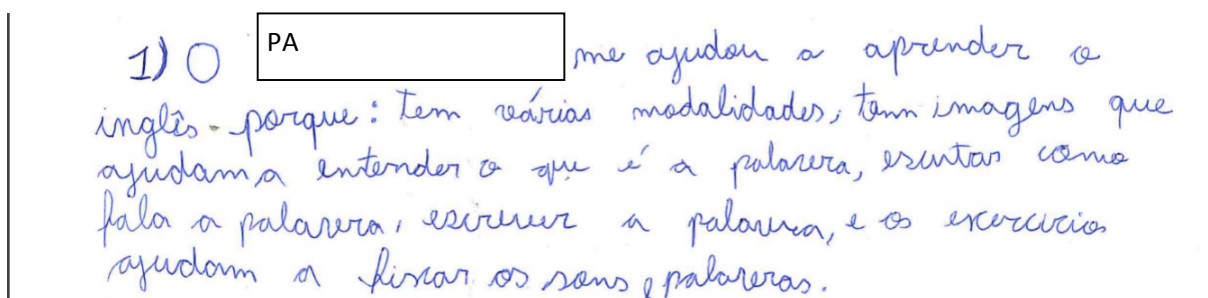 1) O PA me ajudou a aprender o
inglês - porque: tem várias modalidades, tem imagens que
ajudam a entender o que é a palavra, escutar como
fala a palavra, escrever a palavra, e os exercicios
ajudam a fixar os sons e palavras.